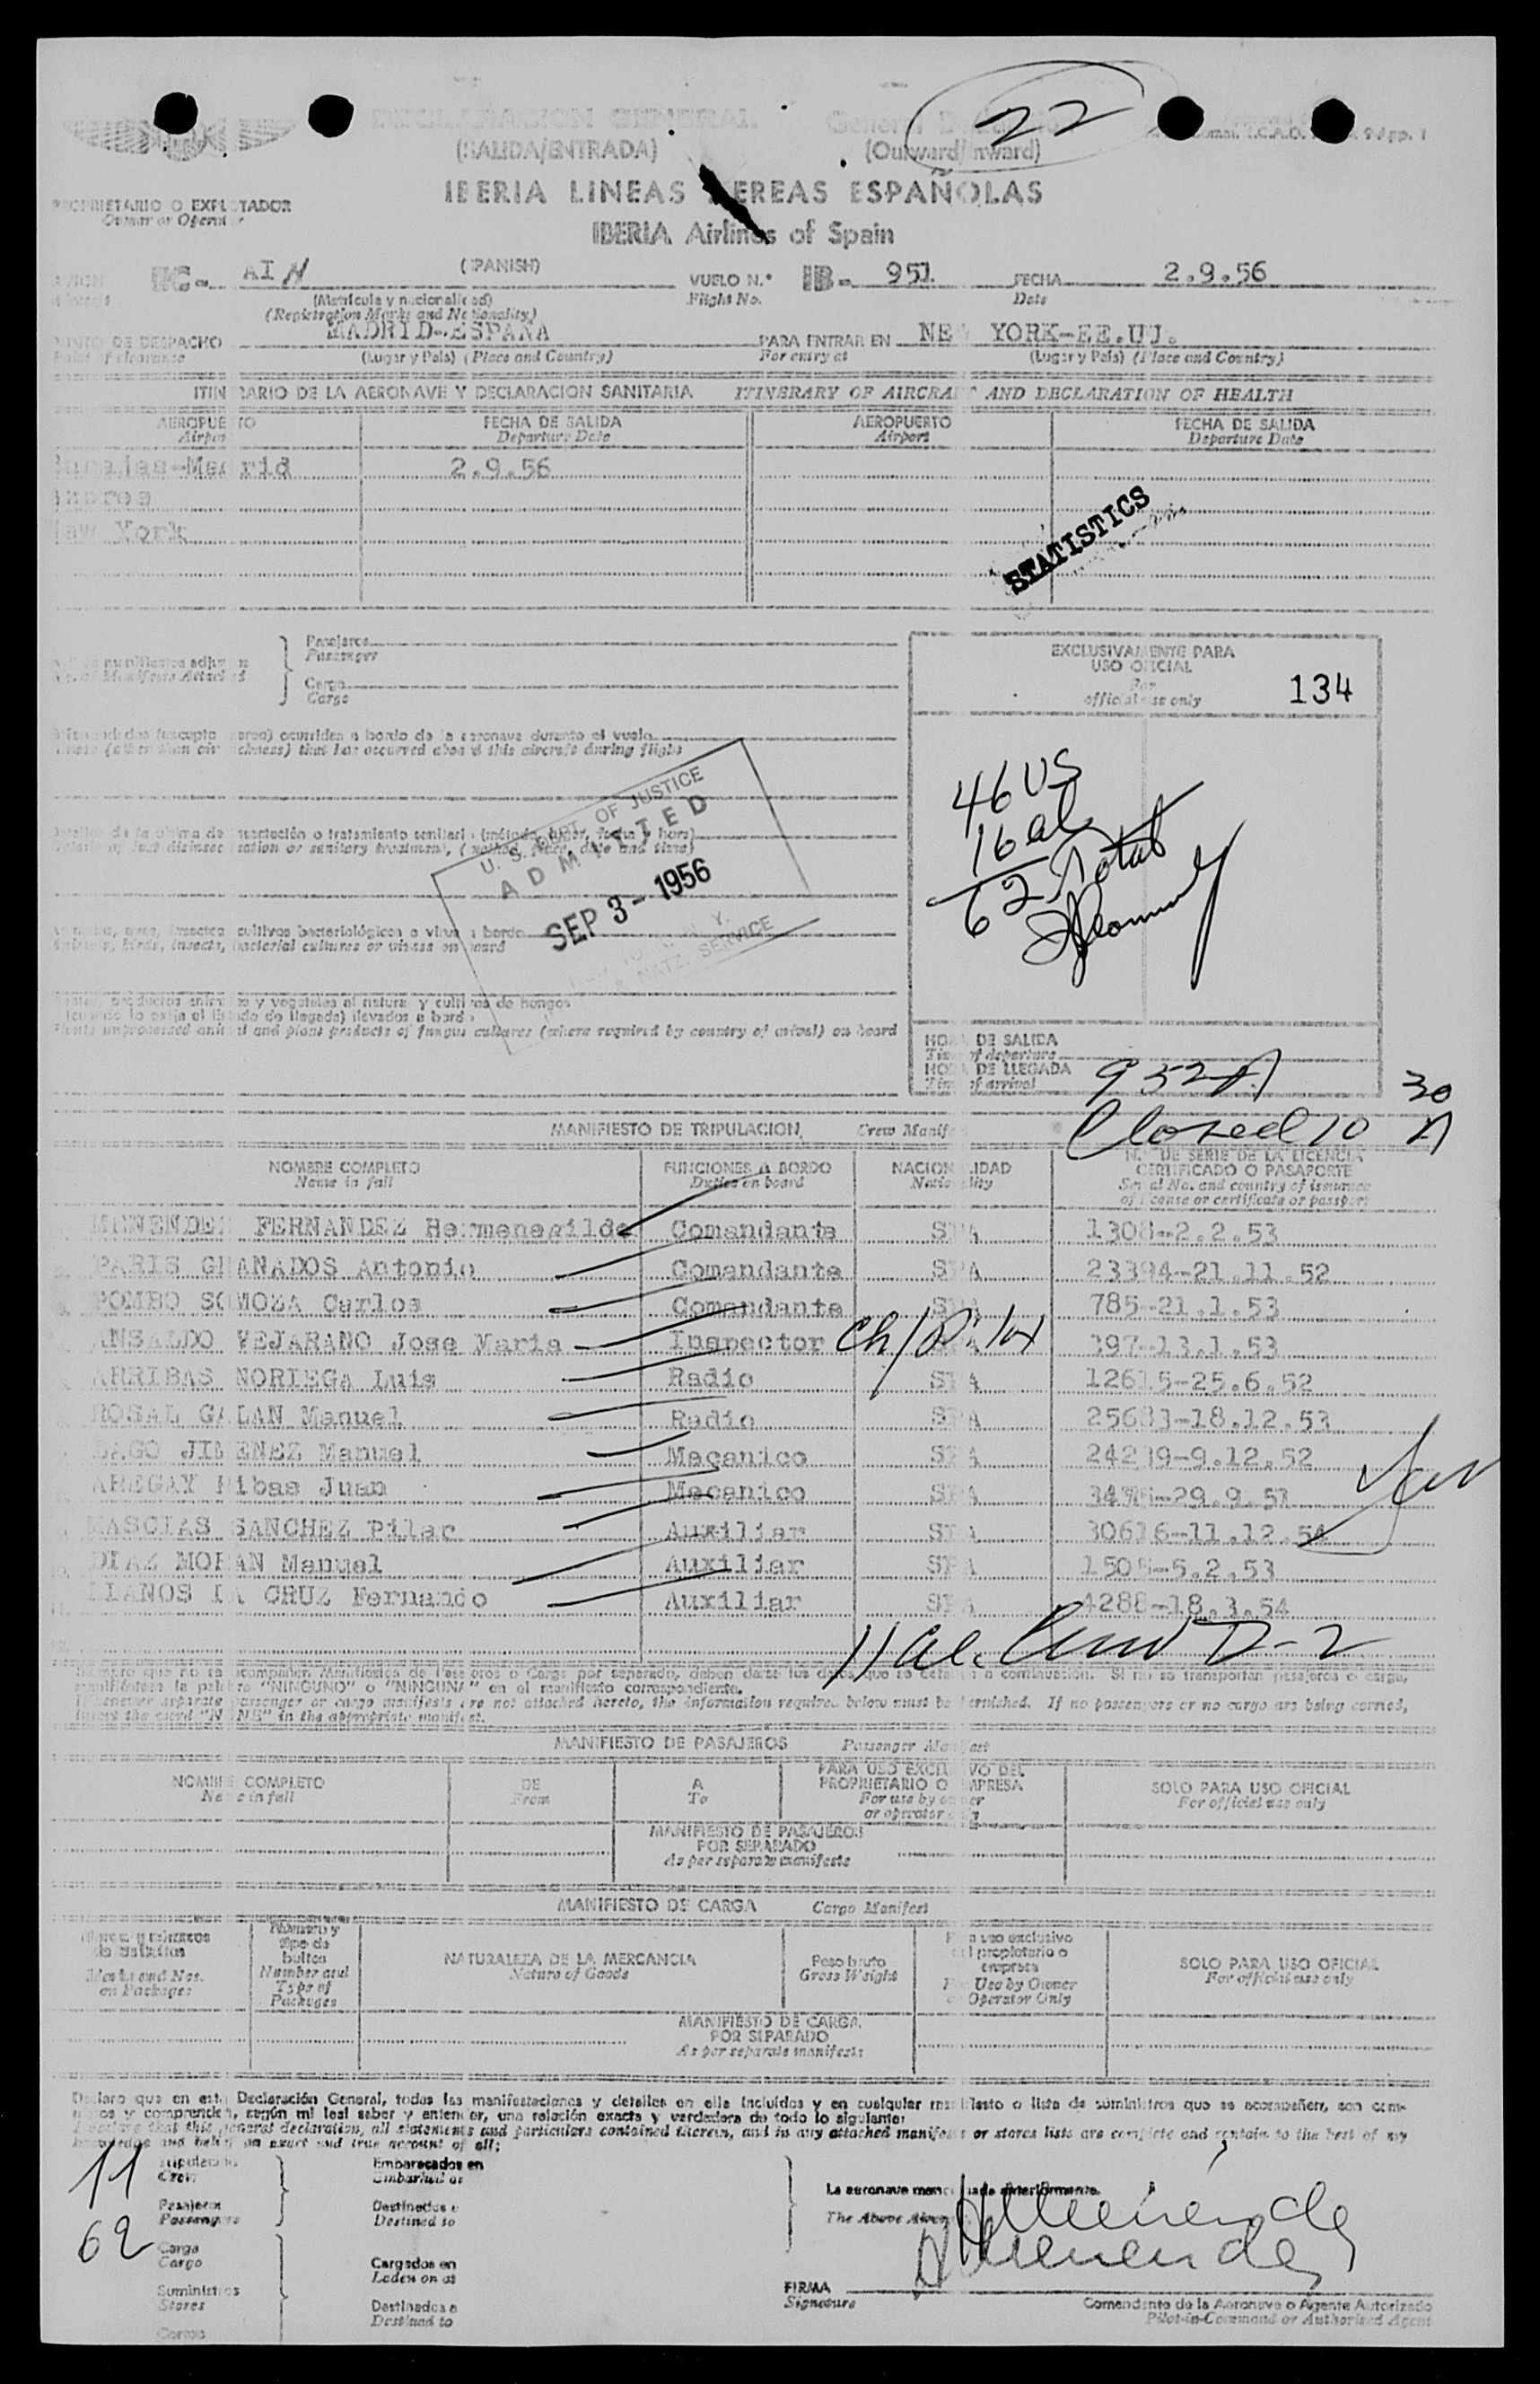 22
DECLARACION GENERAL General
(SALIDA/ENTRADA) (Outward/Inward)
IBERIA LINEAS AEREAS ESPAÑOLAS
PROPRIETARIO O EXPLOTADOR
Owner or Operator
IBERIA Airlines of Spain
EC- AIN (SPANISH) VUELO N.° IB- 951 FECHA 2.9.56
(Matrícula y nacionalidad) Flight No. Date
(Registration Marks and Nationality)
DE DESPACHO MADRID-ESPAÑA PARA ENTRAR EN NEW YORK-EE.UU.
(Lugar y País) (Place and Country) For entry at (Lugar y País) (Place and Country)
ITINERARIO DE LA AERONAVE Y DECLARACION SANITARIA ITINERARY OF AIRCRAFT AND DECLARATION OF HEALTH
AEROPUERTO FECHA DE SALIDA AEROPUERTO FECHA DE SALIDA
Airport Departure Date Airport Departure Date
Barajas-Madrid 2.9.56
New York
STATISTICS
Pasajeros
Passenger
Carga
Cargo
EXCLUSIVAMENTE PARA
USO OFICIAL
For
official use only
134
ocurridas a bordo de la aeronave durante el vuelo
that has occurred aboard this aircraft during flight
46 US
16 al
62 Total
U. S. DEPT. OF JUSTICE
ADMITTED
SEP 3 - 1956
NATZ. SERVICE
cultivos bacteriológicos o virus a bordo
bacterial cultures or viruses on board
and plant products of fungus cultures (where required by country of arrival) on board
HORA DE SALIDA
Time of departure
HORA DE LLEGADA
Time of arrival
952A
Closed 10 30 A
MANIFIESTO DE TRIPULACION Crew Manifest
NOMBRE COMPLETO FUNCIONES A BORDO NACIONALIDAD N.° DE SERIE DE LA LICENCIA
Name in full Duties on board Nationality CERTIFICADO O PASAPORTE
Serial No. and country of issuance
of license or certificate or passport
MENENDEZ FERNANDEZ Hermenegildo Comandante SPA 1308-2.2.53
PARIS GRANADOS Antonio Comandante SPA 23394-21.11.52
POMBO SOMOZA Carlos Comandante SPA 785-21.1.53
ANSALDO VEJARANO Jose Maria Inspector SPA 397-13.1.53
ARRIBAS NORIEGA Luis Radio SPA 12615-25.6.52
ROSAL GALAN Manuel Radio SPA 25683-18.12.53
SAGO JIMENEZ Manuel Mecanico SPA 24239-9.12.52
AREGAY Ribas Juan Mecanico SPA
MASCIAS SANCHEZ Pilar Auxiliar SPA 30616-11.12.54
DIAZ MORAN Manuel Auxiliar SPA 1505-5.2.53
LLANOS LA CRUZ Fernando Auxiliar SPA 4288-18.3.54
11 al. Crew D-2
"NINGUNO" o "NINGUNA" en el manifiesto correspondiente.
Whenever separate passenger or cargo manifests are not attached hereto, the information required below must be furnished. If no passengers or no cargo are being carried,
insert the word "NONE" in the appropriate manifest.
MANIFIESTO DE PASAJEROS Passenger Manifest
NOMBRE COMPLETO DE A PARA USO EXCLUSIVO DEL SOLO PARA USO OFICIAL
Name in full From To PROPRIETARIO O EMPRESA For official use only
For use by owner
or operator only
MANIFIESTO DE PASAJEROS
POR SEPARADO
As per separate manifests
MANIFIESTO DE CARGA Cargo Manifest
Marks and Nos.
on Packages
Número y
tipo de
bultos
Number and
Type of
Packages
NATURALEZA DE LA MERCANCIA
Nature of Goods
Peso bruto
Gross Weight
Para uso exclusivo
del propietario o
empresa
For Use by Owner
or Operator Only
SOLO PARA USO OFICIAL
For official use only
MANIFIESTO DE CARGA
POR SEPARADO
As per separate manifests
Declaro que en esta Declaración General, todas las manifestaciones y detalles en ella incluídos y en cualquier manifiesto o lista de suministros que se acompañen, son com-
y comprenden, según mi leal saber y entender, una relación exacta y verdadera de todo lo siguiente:
I declare that this general declaration, all statements and particulars contained therein, and in any attached manifests or stores lists are complete and contain to the best of my
knowledge and belief an exact and true account of all:
11 Tripulación
Crew
Embarcados en
Embarked at
Pasajeros
Passengers
62
Destinados a
Destined to
La aeronave mencionada anteriormente.
The Above
Carga
Cargo
Cargados en
Laden on at
Suministros
Stores
Destinados a
Destined to
Correo
FIRMA
Signature
Comandante de la Aeronave o Agente Autorizado
Pilot-in-Command or Authorised Agent